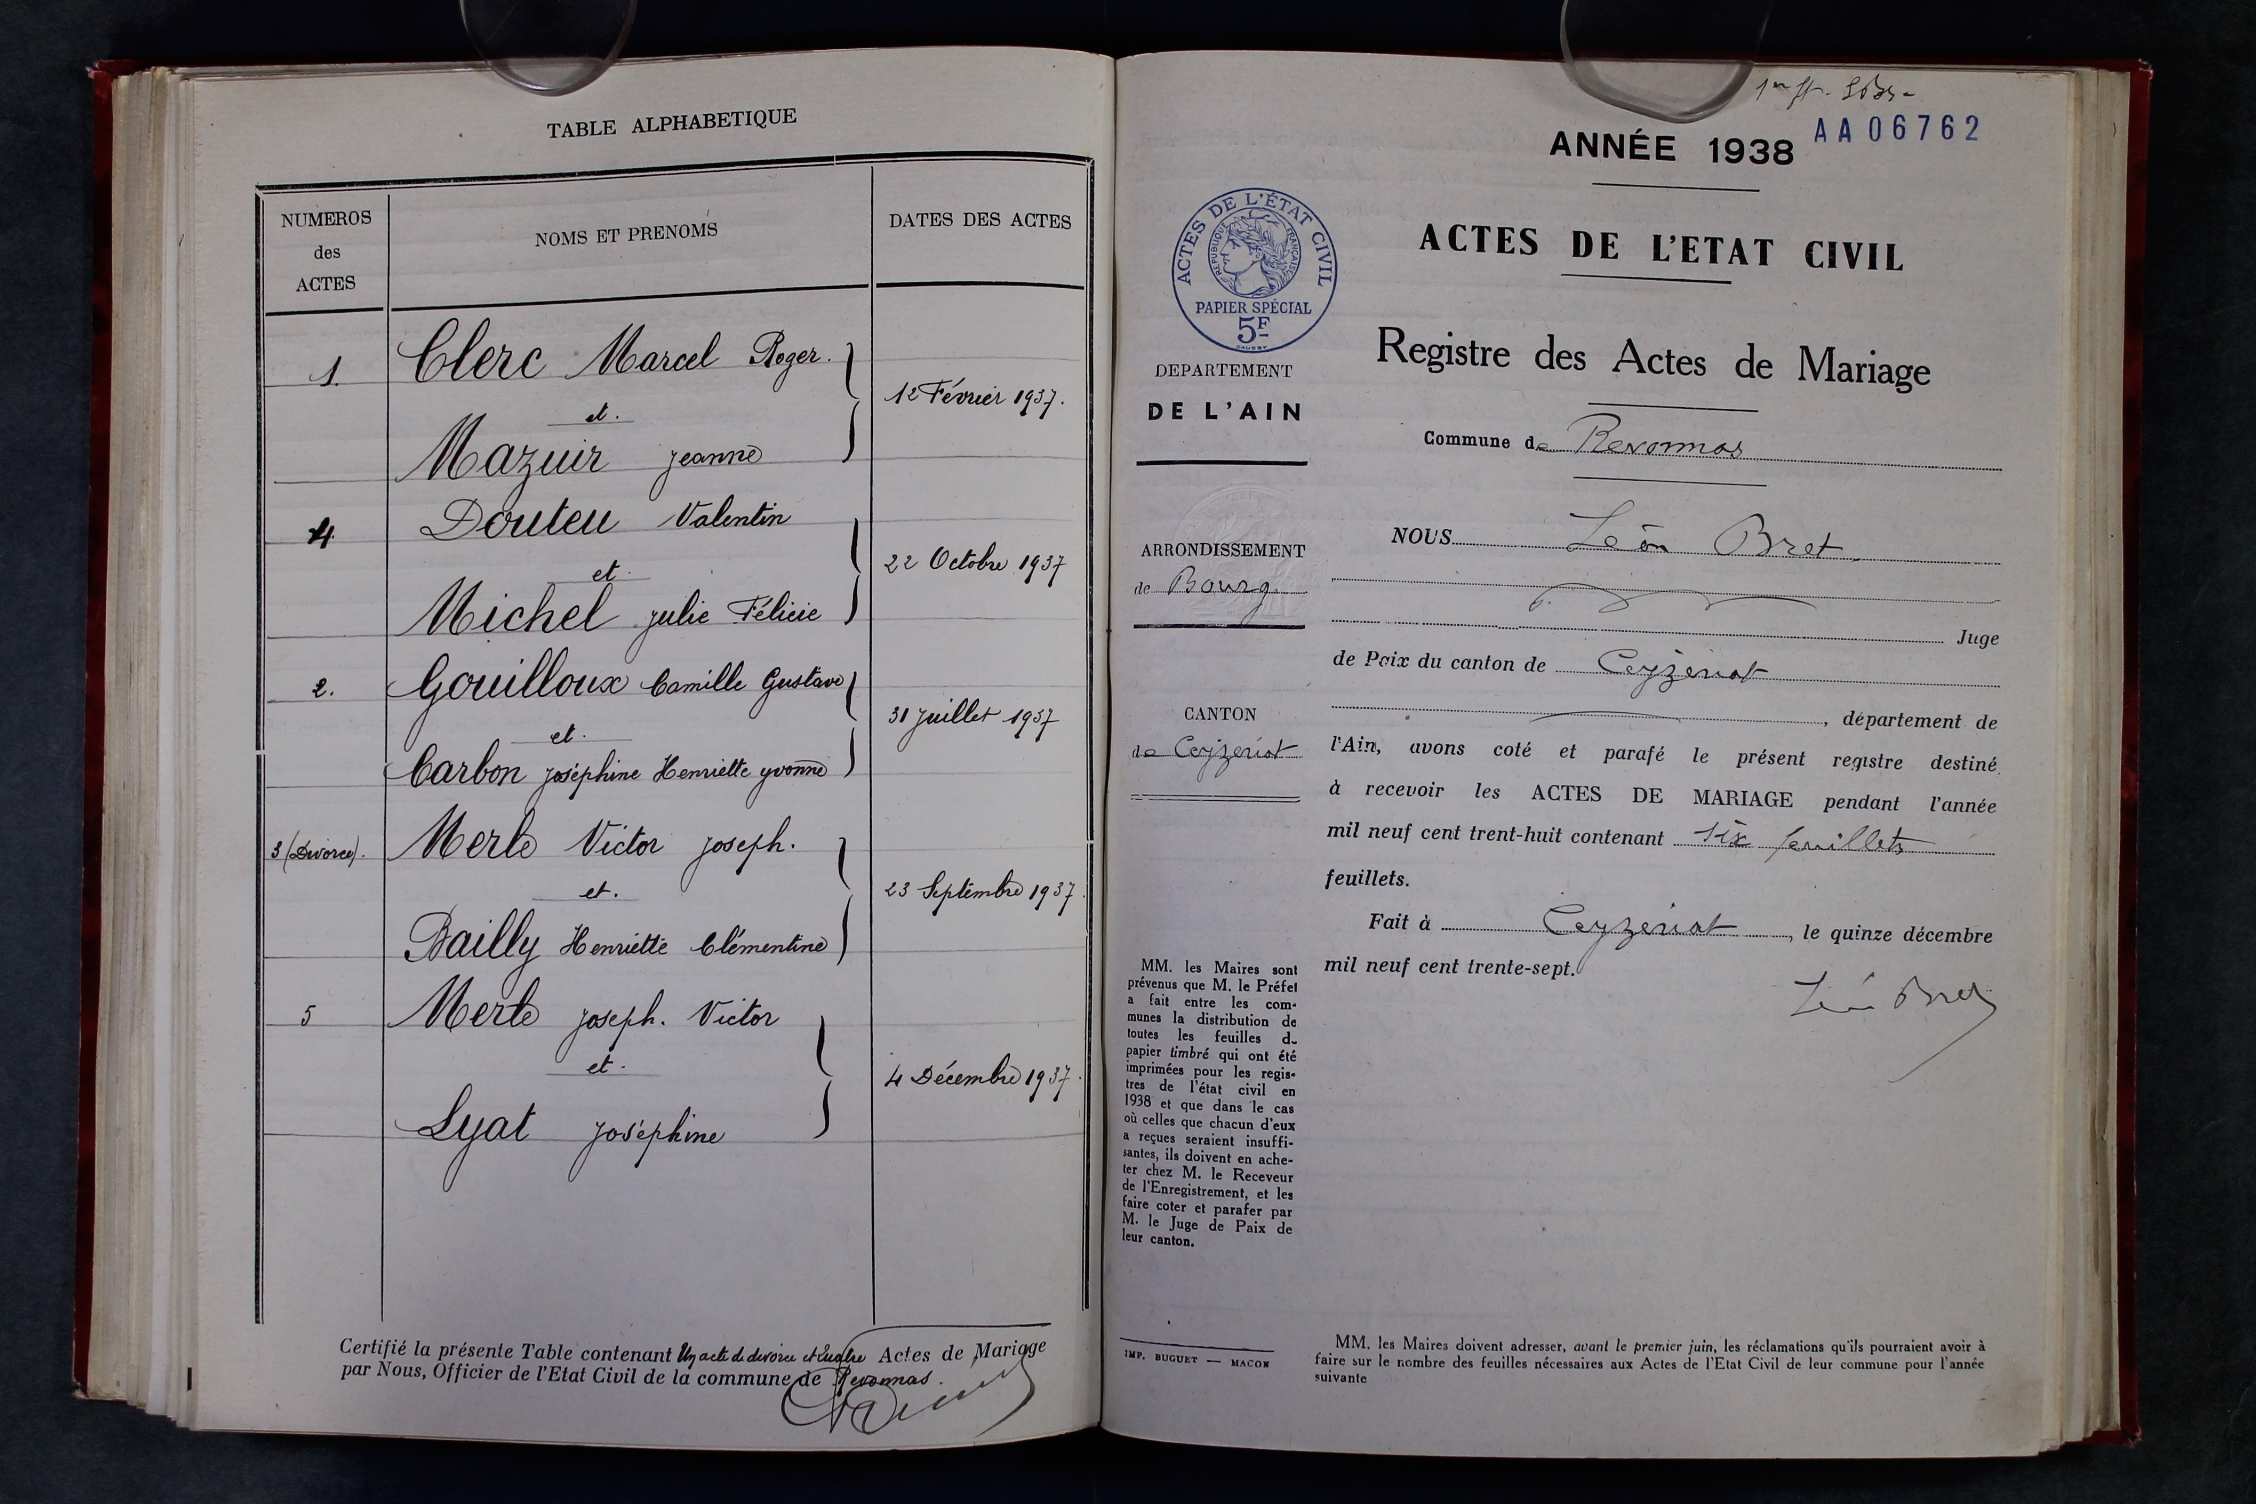 TABLE ALPHABETIQUE
NUMEROS
des
ACTES
NOMS ET PRENOMS
DATES DES ACTES
1.
Clerc Marcel Roger.
et.
Mazuir Jeanne
12 Février 1937.
4
Douteu Valentin
et
Michel Julie Félicie
22 Octobre 1937
2.
Gouilloux Camille Gustave
et.
Carbon Joséphine Henriette Yvonne
31 Juillet 1937
3 (Divorce).
Merle Victor Joseph.
et.
Bailly Henriette Clémentine
23 Septembre 1937.
5
Merle Joseph. Victor
et.
Lyat Joséphine
4 Décembre 1937.
Certifié la présente Table contenant Un acte de divorce et quatre Actes de Mariage
par Nous, Officier de l'Etat Civil de la commune de Revonnas.
AA06762
ANNÉE 1938
ACTES DE L'ÉTAT CIVIL
REPUBLIQUE FRANÇAISE
PAPIER SPÉCIAL
5F
ACTES DE L'ETAT CIVIL
Registre des Actes de Mariage
DEPARTEMENT
DE L'AIN
Commune de Revonnas
ARRONDISSEMENT
de Bourg.
CANTON
de Ceyzeriat
NOUS Léon Bret
Juge
de Paix du canton de Ceyzeriat
, département de
l'Ain, avons coté et parafé le présent registre destiné
à recevoir les ACTES DE MARIAGE pendant l'année
mil neuf cent trent-huit contenant six feuillets
feuillets.
Fait à Ceyzeriat, le quinze décembre
mil neuf cent trente-sept.
Léon Bret
MM. les Maires sont
prévenus que M. le Préfet
a fait entre les com-
munes la distribution de
toutes les feuilles d
papier timbré qui ont été
imprimées pour les regis-
tres de l'état civil en
1938 et que dans le cas
où celles que chacun d'eux
a reçues seraient insuffi-
santes, ils doivent en ache-
ter chez M. le Receveur
de l'Enregistrement, et les
faire coter et parafer par
M. le Juge de Paix de
leur canton.
IMP. BUGUET — MACON
MM. les Maires doivent adresser, avant le premier juin, les réclamations qu'ils pourraient avoir à
faire sur le nombre des feuilles nécessaires aux Actes de l'Etat Civil de leur commune pour l'année
suivante